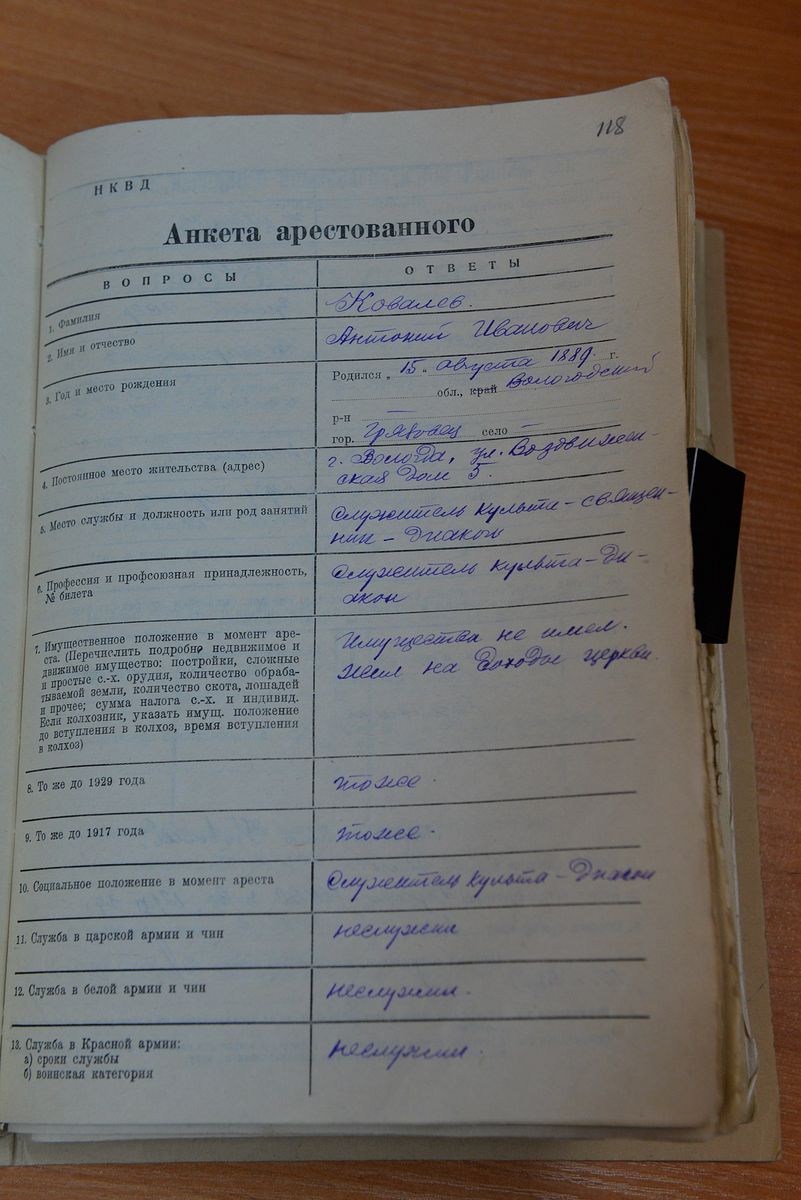 118
НКВД
Анкета арестованного
ВОПРОСЫ
ОТВЕТЫ
1. Фамилия
Ковалев.
2. Имя и отчество
Антоний Иванович
3. Год и место рождения
Родился „ 15 „ августа 1889. г.
обл., край Вологодский
р-н —
гор. Грязовец село —
4. Постоянное место жительства (адрес)
г. Вологда, ул. Воздвижен-
ская Дом 5.
5. Место службы и должность или род занятий
Служитель культа – священ-
ник – Диакон
6. Профессия и профсоюзная принадлежность,
№ билета
Служитель культа – Ди-
акон
7. Имущественное положение в момент аре-
ста. (Перечислить подробно недвижимое и
движимое имущество: постройки, сложные
и простые с.-х. орудия, количество обраба-
тываемой земли, количество скота, лошадей
и прочее; сумма налога с.-х. и индивид.
Если колхозник, указать имущ. положение
до вступления в колхоз, время вступления
в колхоз)
Имущества не имел.
Жил на Доходы церкви.
8. То же до 1929 года
тоже.
9. То же до 1917 года
тоже.
10. Социальное положение в момент ареста
Служитель культа – Диакон
11. Служба в царской армии и чин
неслужил
12. Служба в белой армии и чин
неслужил.
13. Служба в Красной армии:
а) сроки службы
б) воинская категория
неслужил.